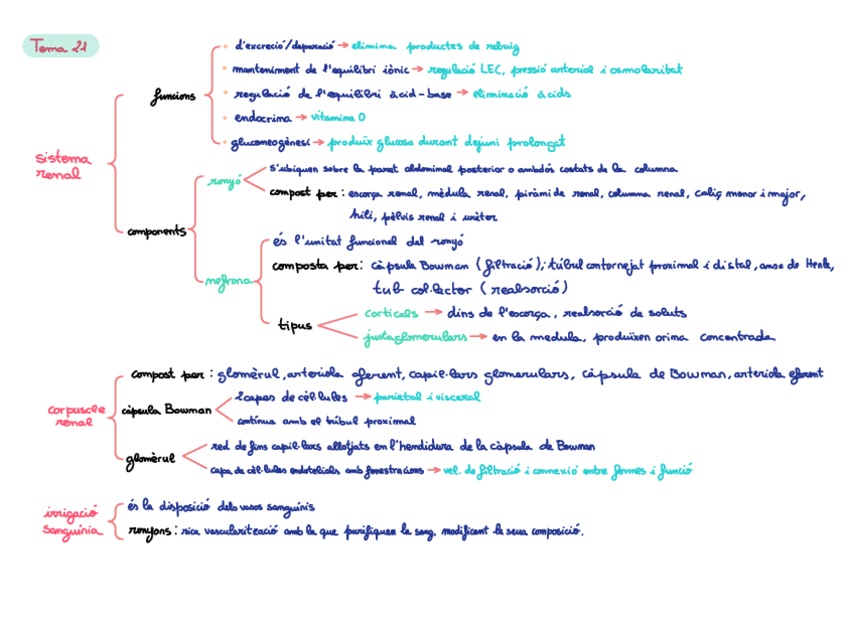 Tema 21
sistema renal
funcions
d'excreció/depuració → elimina productes de rebuig
manteniment de l'equilibri iònic → regulació LEC, pressió arterial i osmolaritat
regulació de l'equilibri àcid-base → eliminació àcids
endocrina → vitamina D
gluconeogènesi → produïx glucosa durant dejuni prolongat
components
ronyó
s'ubiquen sobre la paret abdominal posterior a ambdós costats de la columna
compost per: escorça renal, mèdula renal, piràmide renal, columna renal, caliç menor i major,
hili, pèlvis renal i urèter
nefrona
és l'unitat funcional del ronyó
composta per: càpsula Bowman (filtració); túbul contornejat proximal i distal, ansa de Henle,
tub col·lector (reabsorció)
tipus
corticals → dins de l'escorça, reabsorció de soluts
juxtaglomerulars → en la medula, produïxen orina concentrada
corpuscle renal
compost per: glomèrul, arteriola aferent, capil·lars glomerulars, càpsula de Bowman, arteriola eferent
càpsula Bowman
2 capes de cèl·lules → parietal i visceral
contínua amb el túbul proximal
glomèrul
red de fins capil·lars allotjats en l'hendidura de la càpsula de Bowman
capa de cèl·lules endotelials amb fenestracions → vel. de filtració i connexió entre formes i funció
irrigació sanguínia
és la disposició dels vasos sanguinis
ronyons: rica vascularització amb la que purifiquen la sang, modificant la seua composició.